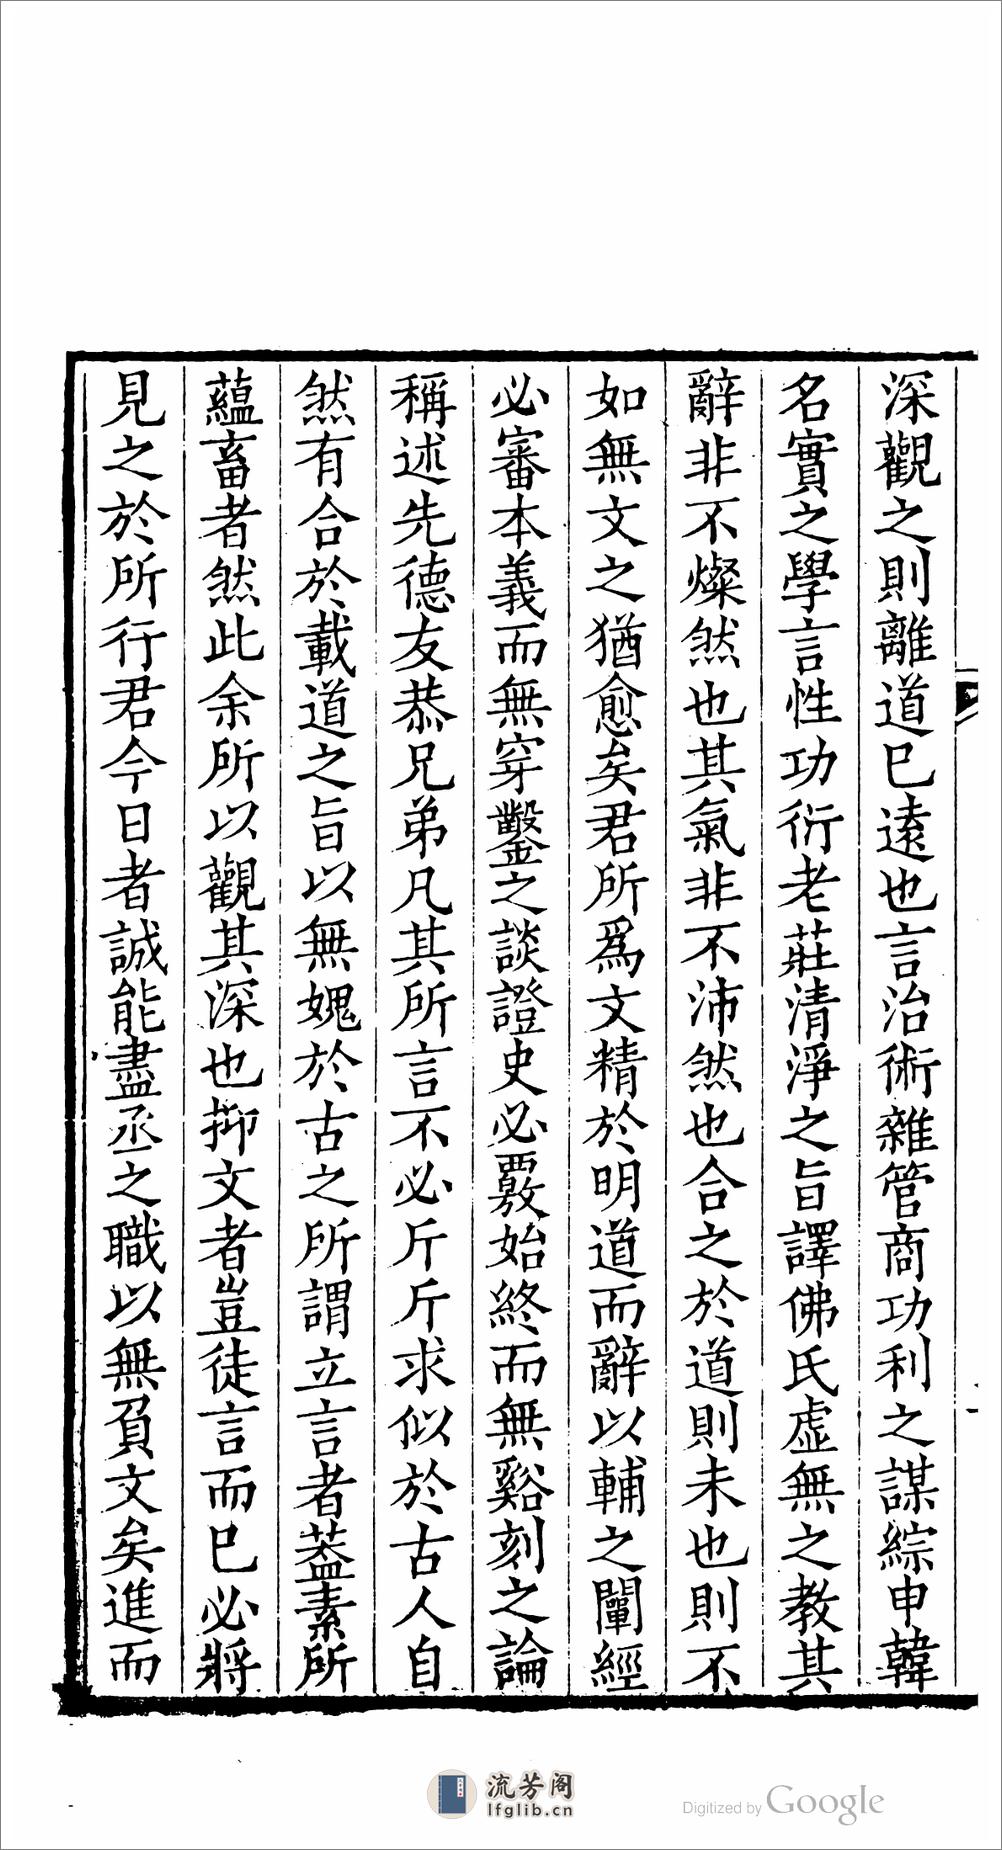 深觀之則離道已遠也言治術雜管商功利之謀綜申韓
名實之學言性功衍老莊清淨之旨譯佛氏虛無之教其
辭非不燦然也其氣非不沛然也合之於道則未也則不
如無文之猶愈矣君所爲文精於明道而辭以輔之闡經
必審本義而無穿鑿之談證史必覈始終而無谿刻之論
稱述先德友恭兄弟凡其所言不必斤斤求似於古人自
然有合於載道之旨以無媿於古之所謂立言者葢素所
蘊畜者然此余所以觀其深也抑文者豈徒言而已必將
見之於所行君今日者誠能盡丞之職以無負文矣進而
流芳阁
lfglib.cn
Digitized by Google